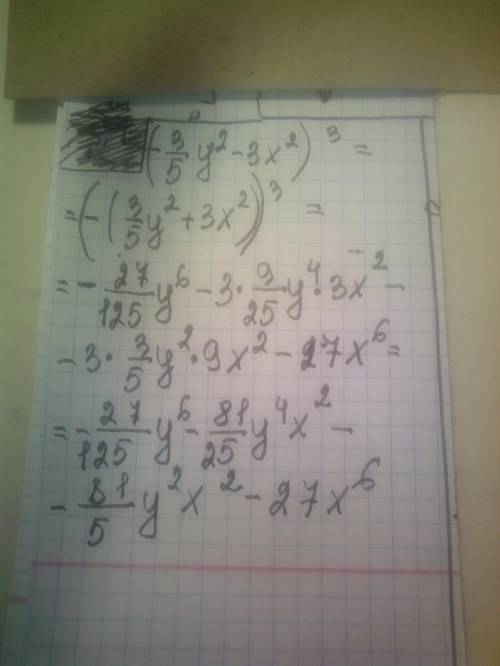 (-3/5 y² - 3x²)³ =
= (-(3/5 y² + 3x²))³ =
= - 27/125 y⁶ - 3 · 9/25 y⁴ · 3x² -
- 3 · 3/5 y² · 9x² - 27x⁶ =
= - 27/125 y⁶ - 81/25 y⁴x² -
- 81/5 y²x² - 27x⁶